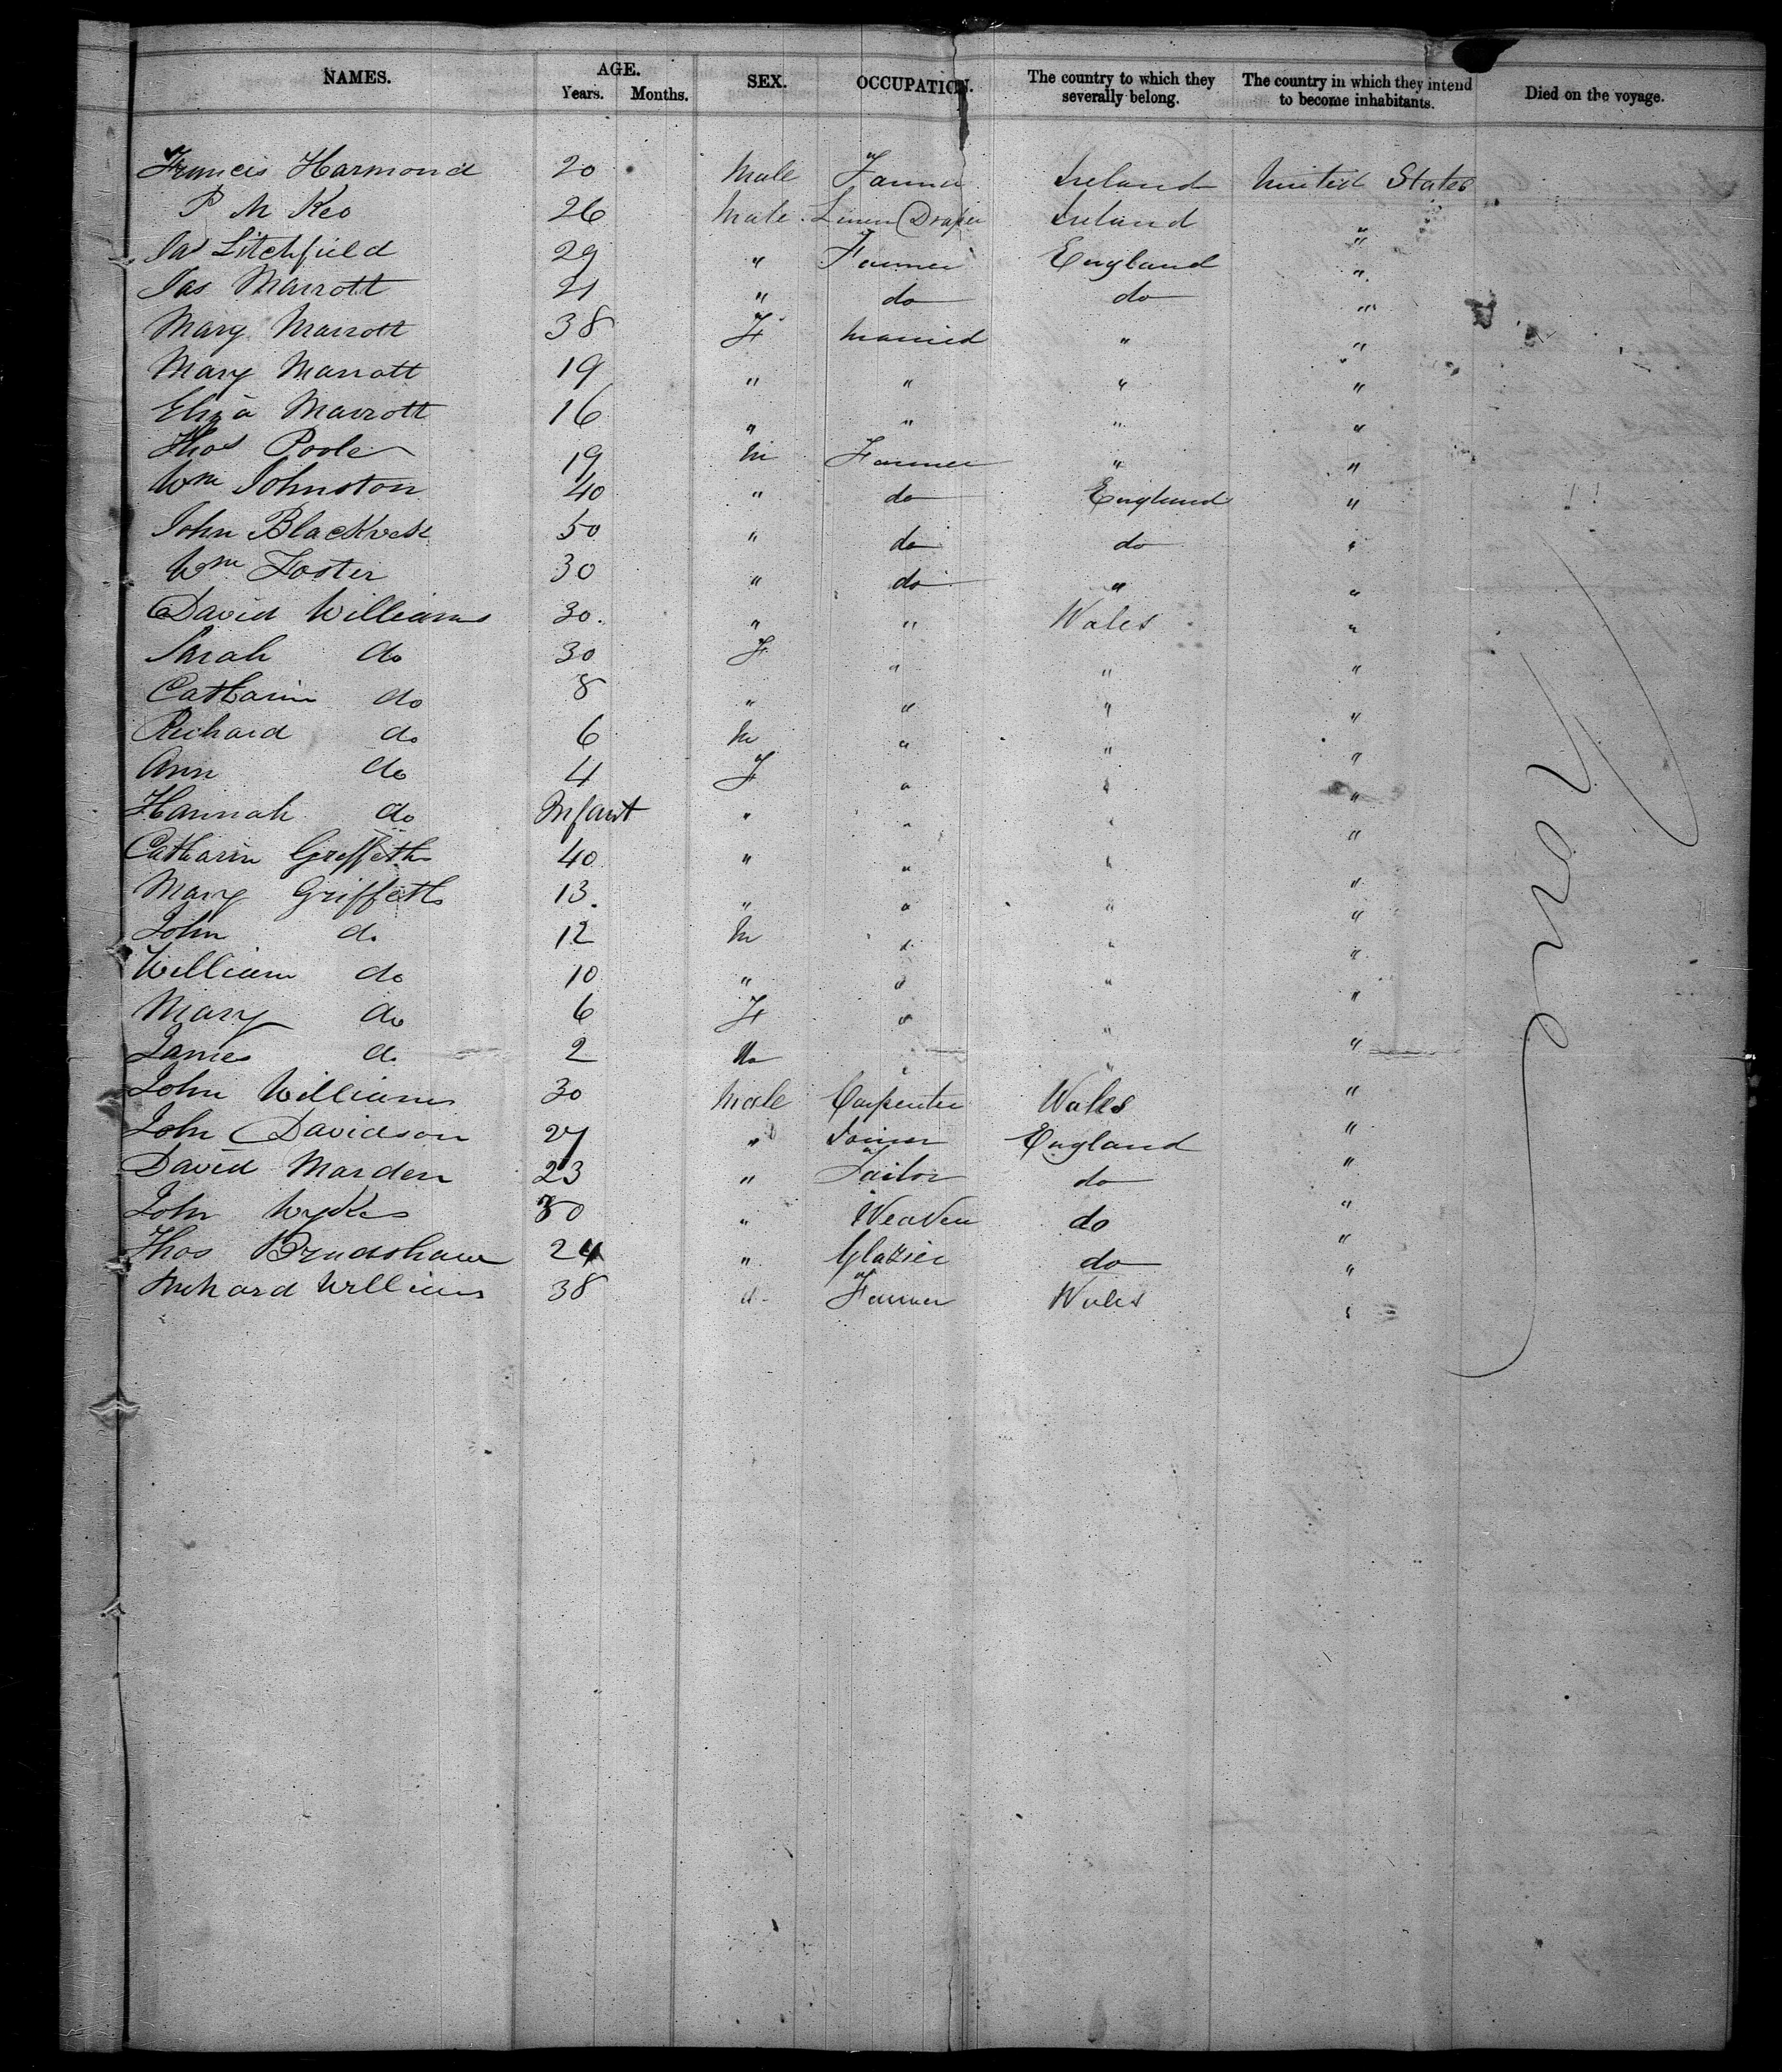 NAMES. AGE. Years. Months. SEX. OCCUPATION. The country to which they severally belong. The country in which they intend to become inhabitants. Died on the voyage.
Francis Harmond 20 Male Farmer Ireland United States
P M Keo 26 Male Linen Draper Ireland "
Jas Litchfield 29 " Farmer England "
Jas Marrott 21 " do do "
Mary Marrott 38 F married " "
Mary Marrott 19 " " " "
Eliza Marrott 16 " " " "
Thos Poole 19 M Farmer " "
Wm Johnston 40 " do England "
John Blackwell 50 " do do "
Wm Foster 30 " do " "
David Williams 30 " " Wales "
Sarah do 30 F " " "
Catharin do 8 " " " "
Richard do 6 M " " "
Ann do 4 F " " "
Hannah do Infant " " " "
Catharin Griffeths 40 " " " "
Mary Griffeths 13 " " " "
John do 12 M " " "
William do 10 " " " "
Mary do 6 F " " "
James do 2 " " "
John Williams 30 Male Carpenter Wales "
John Davidson 27 " Joiner England "
David Marden 23 " Tailor do "
John Wykes 30 " Weaver do "
Thos Bradshaw 24 " Glazier do "
Richard Williams 38 " Farmer Wales "
None